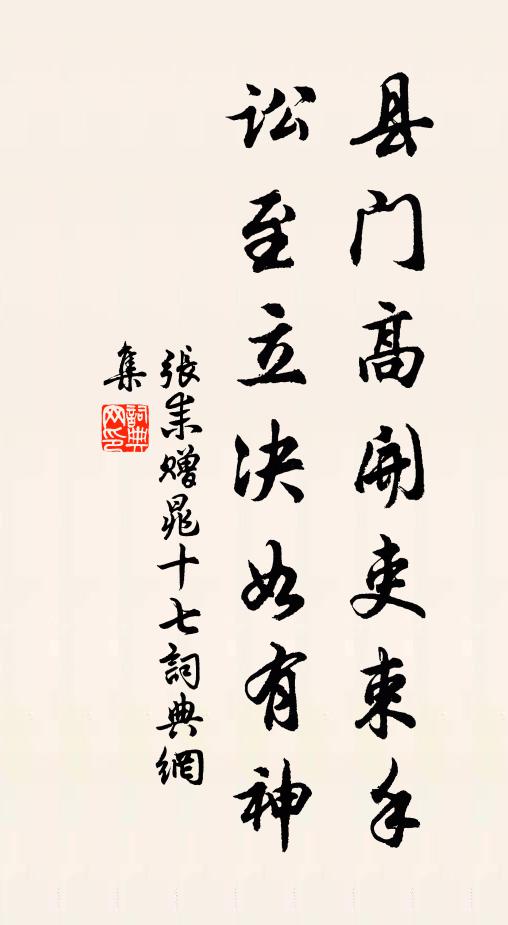 县门高開吏束手
讼至立决如有神
張耒赠晁十七詞典網
集
詞典网印